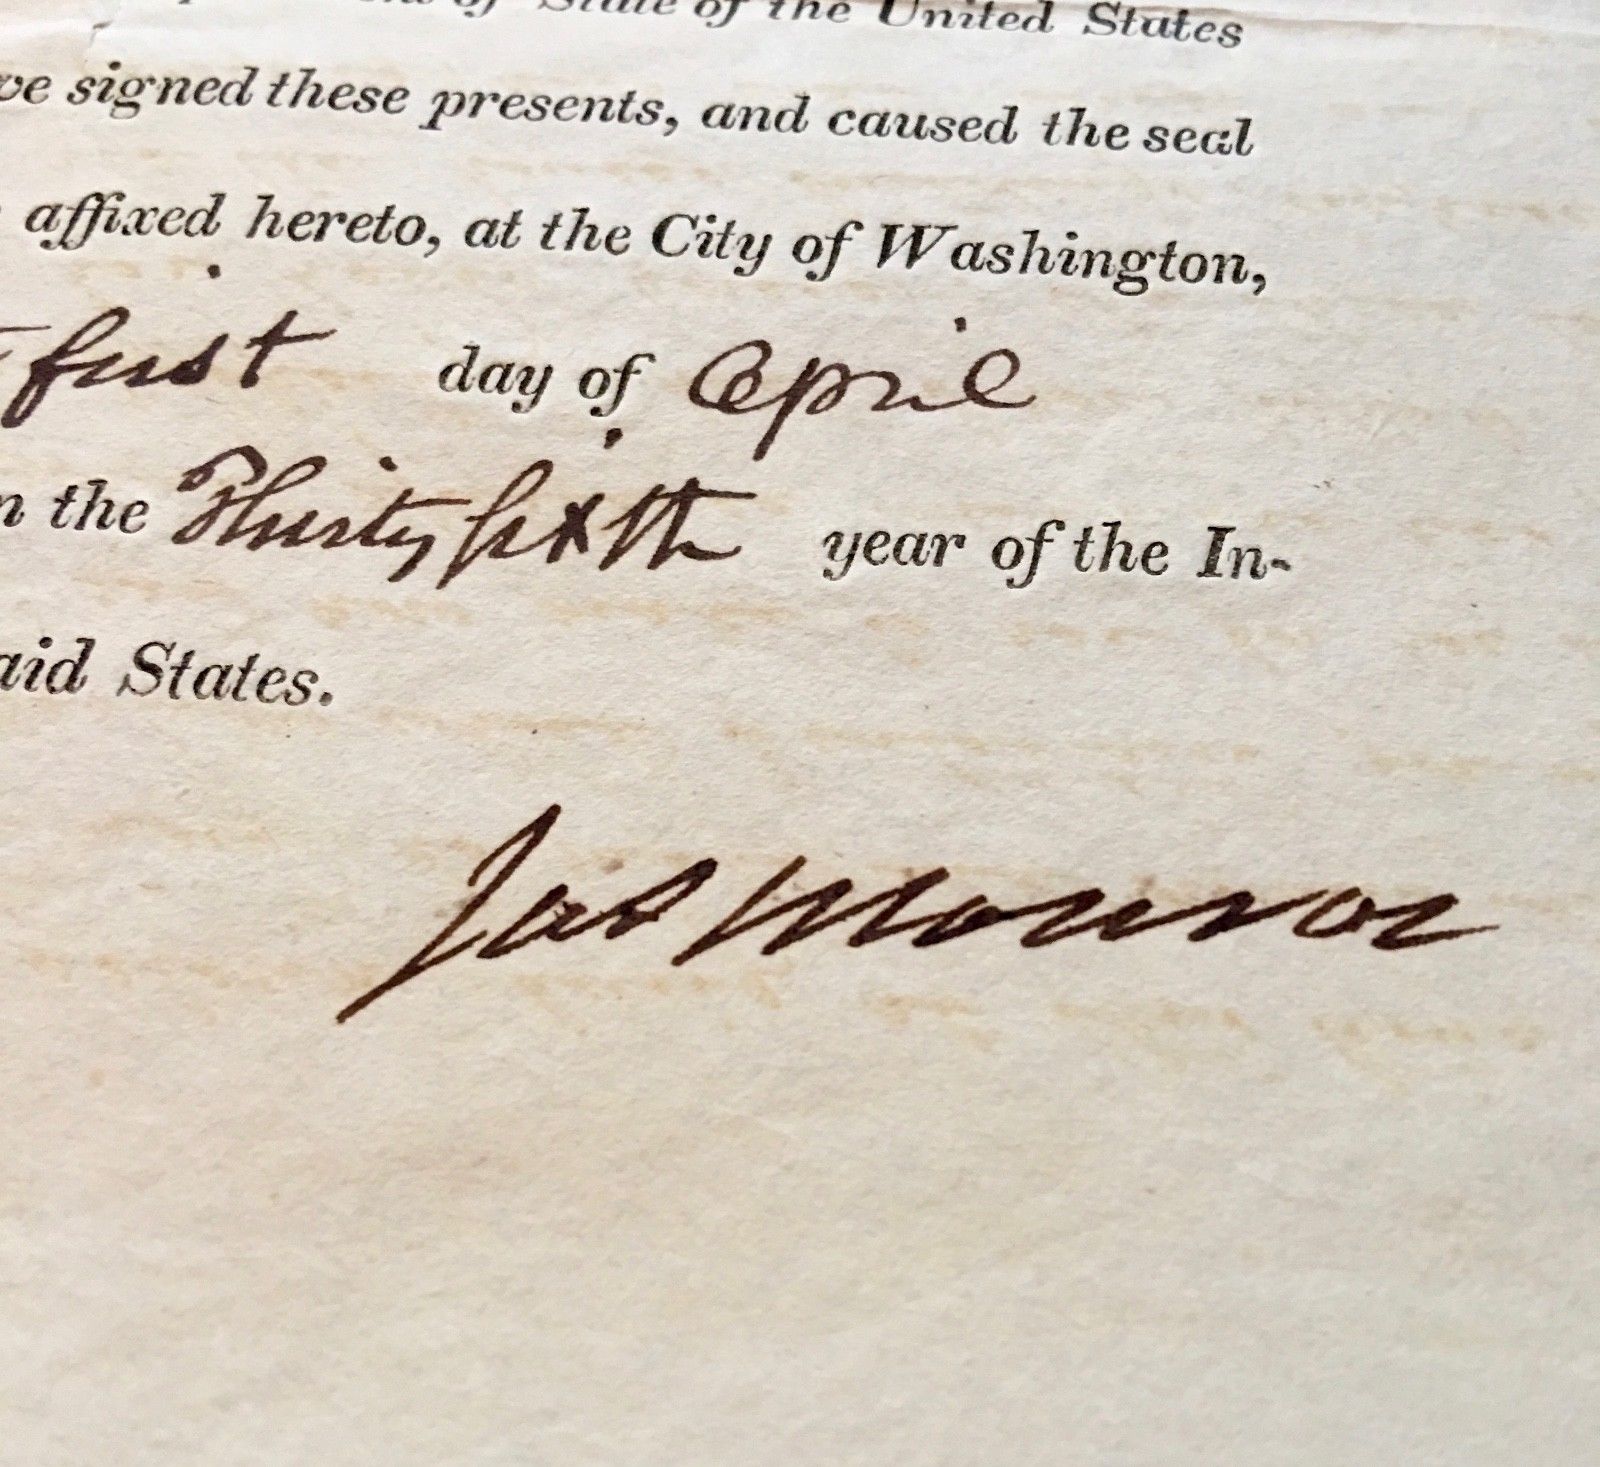 of State of the United States
ve signed these presents, and caused the seal
affixed hereto, at the City of Washington,
first day of April
n the Thirty sixth year of the In-
aid States.
Jas Monroe